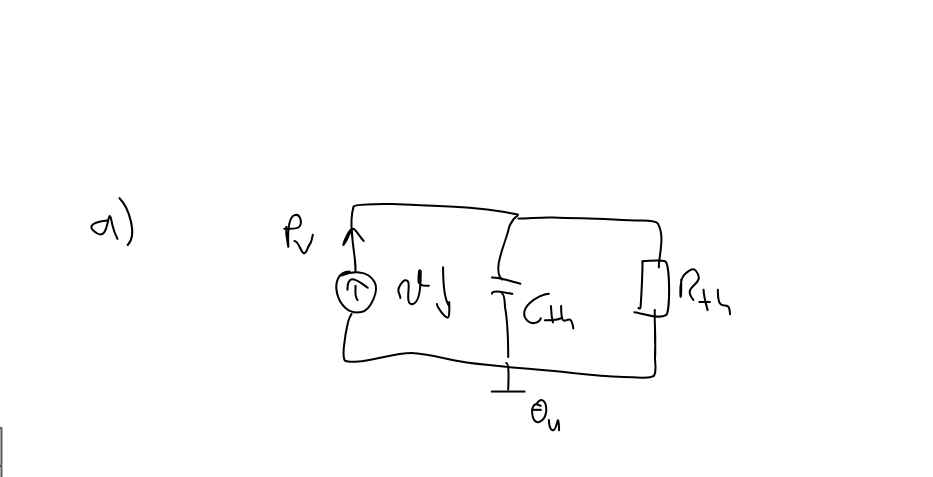 a)
P_V
ϑ
C_th
R_th
Θ_u